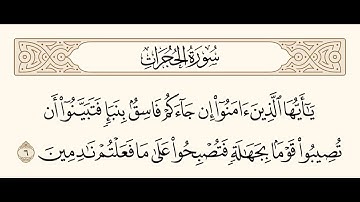 سُورَةُ الحُجُرَاتِ
يَٰٓأَيُّهَا ٱلَّذِينَ ءَامَنُوٓا۟ إِن جَآءَكُمْ فَاسِقٌۢ بِنَبَإٍ فَتَبَيَّنُوٓا۟ أَن
تُصِيبُوا۟ قَوْمًۢا بِجَهَٰلَةٍ فَتُصْبِحُوا۟ عَلَىٰ مَا فَعَلْتُمْ نَٰدِمِينَ ٦